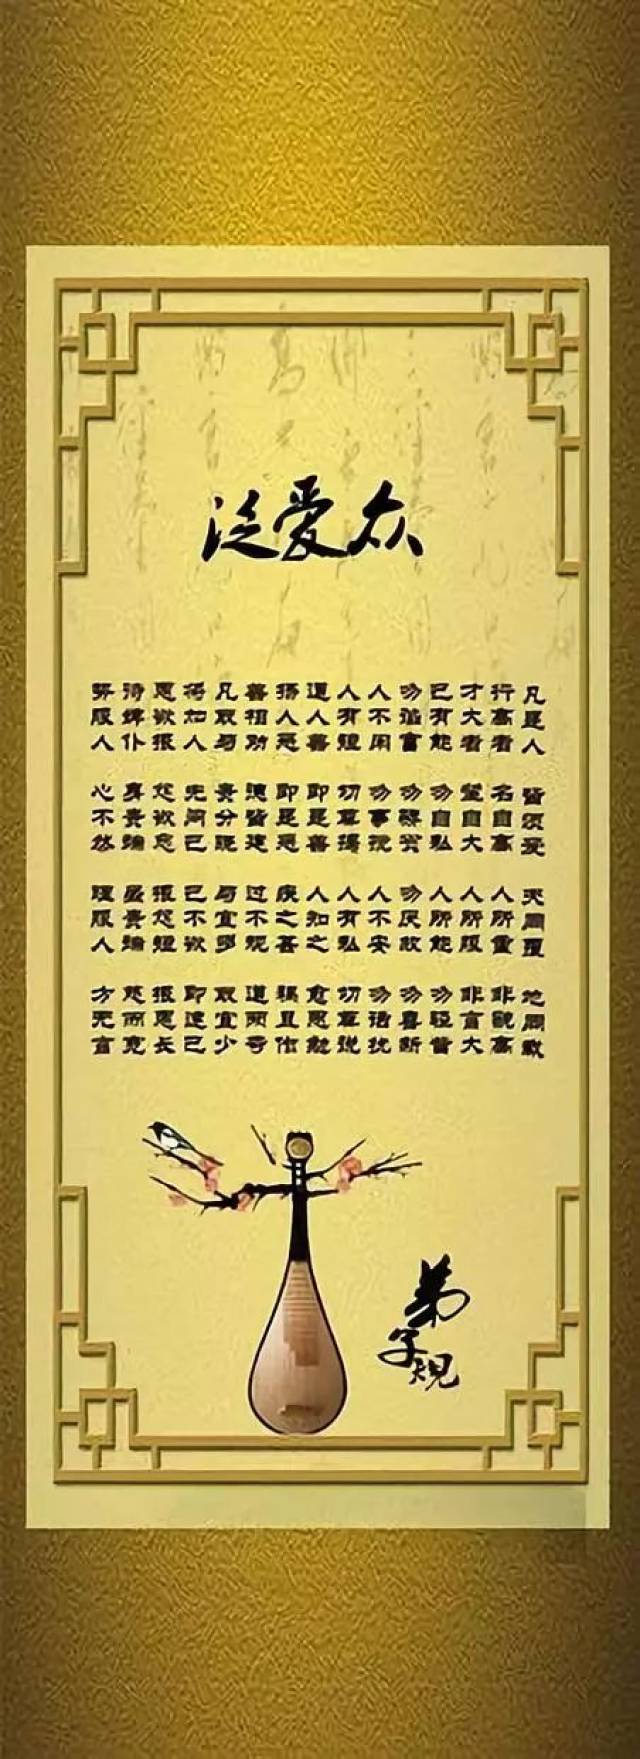 泛爱众
凡是人 皆须爱 天同覆 地同载
行高者 名自高 人所重 非貌高
才大者 望自大 人所服 非言大
己有能 勿自私 人所能 勿轻訾
勿谄富 勿骄贫 勿厌故 勿喜新
人不闲 勿事搅 人不安 勿话扰
人有短 切莫揭 人有私 切莫说
道人善 即是善 人知之 愈思勉
扬人恶 即是恶 疾之甚 祸且作
善相劝 德皆建 过不规 道两亏
凡取与 贵分晓 与宜多 取宜少
将加人 先问己 己不欲 即速已
恩欲报 怨欲忘 报怨短 报恩长
待婢仆 身贵端 虽贵端 慈而宽
势服人 心不然 理服人 方无言
弟子规